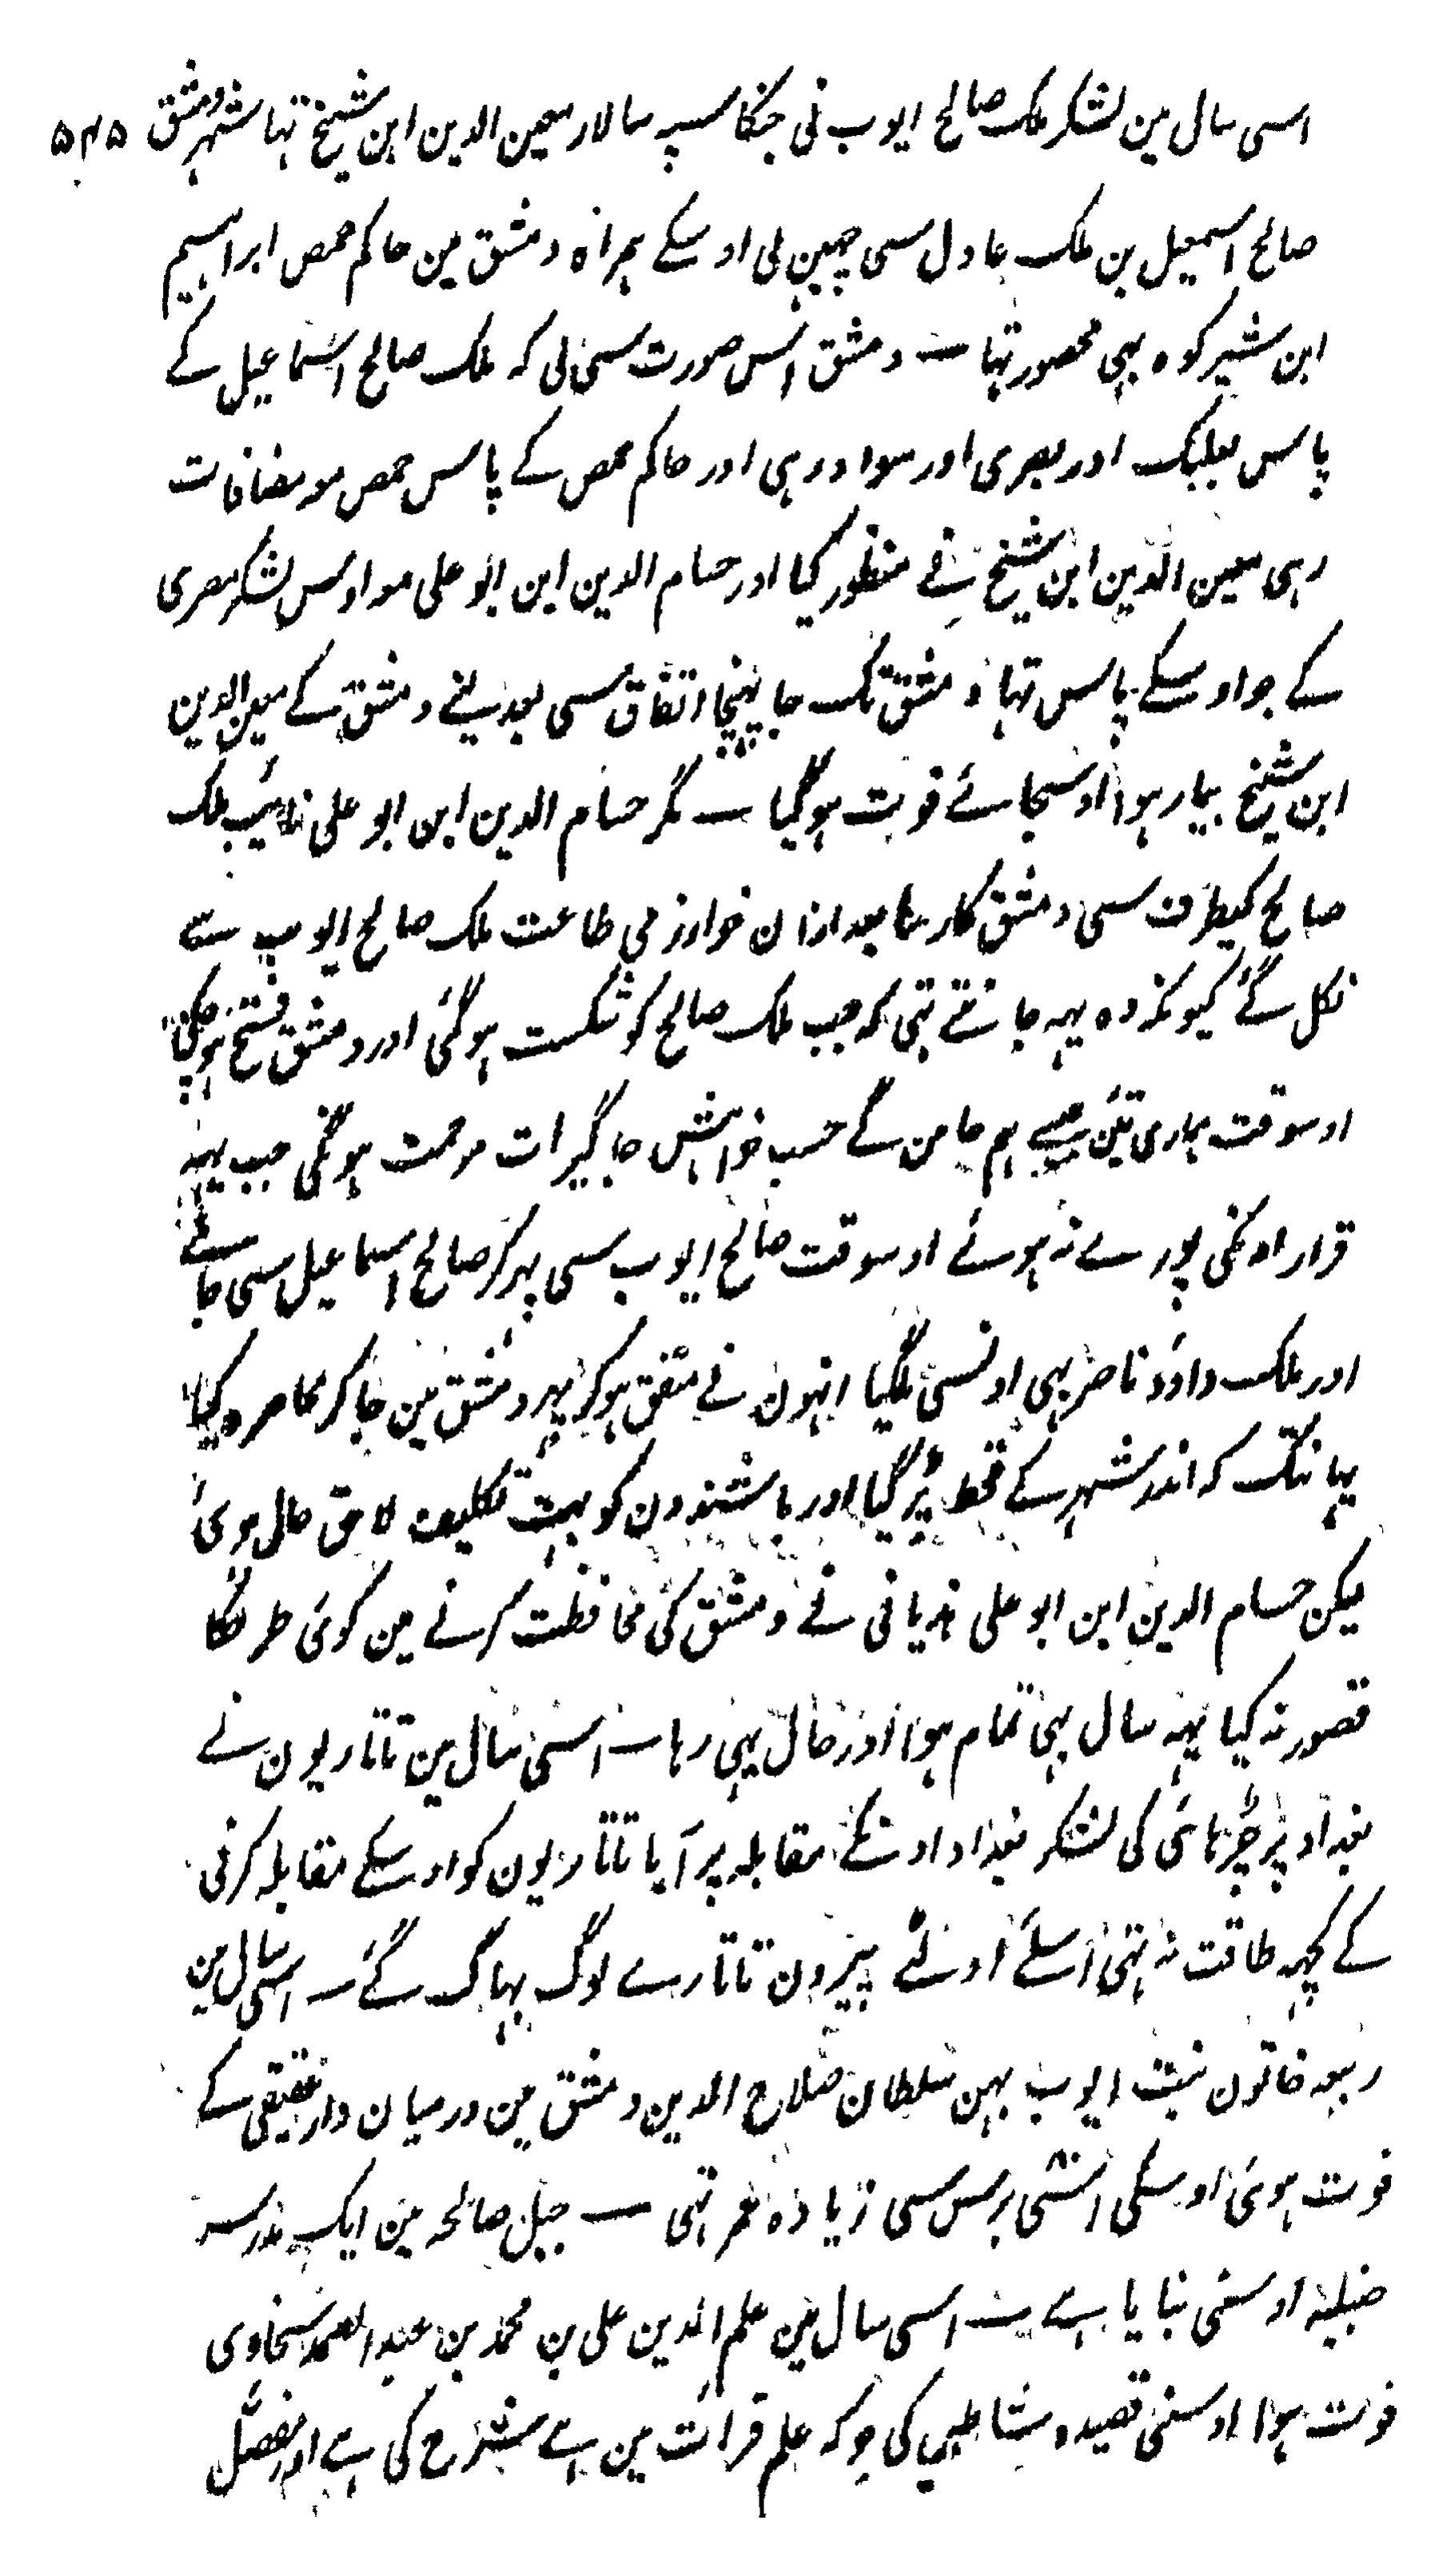 اسی سال مین لشکر ملک صالح ایوب نی جنکا سپہ سالار معین الدین ابن شیخ تہا شہر دمشق ۵۴۵
صالح اسمعیل بن ملک عادل سی چھین لی اوسکے ہمراہ دمشق مین حاکم حمص ابراہیم
ابن شیرکوہ بہی محصور تہا ـــ دمشق اس صورت سی لی کہ ملک صالح اسماعیل کے
پاس بعلبک اور بصری اور سواد رہی اور حاکم حمص کے پاس حمص مو مضافات
رہی معین الدین ابن شیخ نے منظور کیا اور حسام الدین ابن ابو علی مو اوس لشکر مصری
کے جو اوسکے پاس تہا دمشق تک جا پہنچا اتفاق سی بعد لینے دمشق کے معین الدین
ابن شیخ بیمار ہوا اوسیجائے فوت ہوگیا ـــ مگر حسام الدین ابن ابو علی نایب ملک
صالح کیطرف سی دمشق کا رہا بعد ازان خوارزمی طاعت ملک صالح ایوب سے
نکل گئے کیونکہ وہ یہہ جانتے تہی کہ جب ملک صالح کو شکست ہوگئی اور دمشق فتح ہوچکی
اوسوقت ہماری تئین جیسے ہم چاہین گے حسب خواہش جاگیرات مرحمت ہونگی جب یہہ
قرار اونکی پورے نہ ہوئے اوسوقت صالح ایوب سی پہر کر صالح اسماعیل سی جاملے
اور ملک داؤد ناصر بہی اونسی ملگیا انہون نے متفق ہوکر پہر دمشق مین جا کر محاصرہ کیا
یہانتک کہ اندر شہر کے قحط پڑ گیا اور باشندون کو بہت تکلیف لاحق حال ہوئی
لیکن حسام الدین ابن ابو علی ہذبانی نے دمشق کی محافظت کرنے مین کوئی طرحکا
قصور نہ کیا یہہ سال بہی تمام ہوا اور حال یہی رہا ـــ اسی سال مین تاتاریون نے
بغداد پر چڑہائی کی لشکر بغداد اونکے مقابلہ پر آیا تاتاریون کو اوسکے مقابلہ کرنی
کے کچہہ طاقت نہ تہی اسلئے اولٹے پیرون تاتارے لوگ بہاگ گئے ـــ اسی سال مین
ربیعہ خاتون بنت ایوب بہن سلطان صلاح الدین دمشق مین درمیان دار عقیقی کے
فوت ہوئی اوسکی اسّی برس سی زیادہ عمر تہی ـــ جبل صالحہ مین ایک مدرسہ
حنبلیہ اوسنی بنایا ہے ـــ اسی سال مین علم الدین علی بن محمد بن عبد الصمد سخاوی
فوت ہوا اوسنی قصیدہ شاطبی کی جو کہ علم قرائت مین ہے شرح کی ہے اور مفصّل